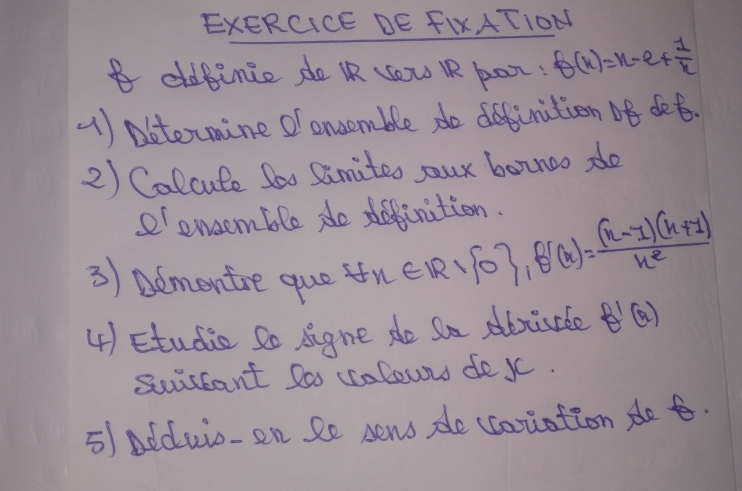 EXERCICE DE FIXATION
f définie de IR vers IR par : f(x)=x-2+\frac{1}{x}
1) Détermine l'ensemble de définition Df de f.
2) Calcule les limites aux bornes de
l'ensemble de définition.
3) Démontre que ∀x ∈ IR \ {0}, f'(x)=\frac{(x-1)(x+1)}{x^2}
4) Etudie le signe de la dérivée f'(x)
suivant les valeurs de x.
5) Déduis-en le sens de variation de f.